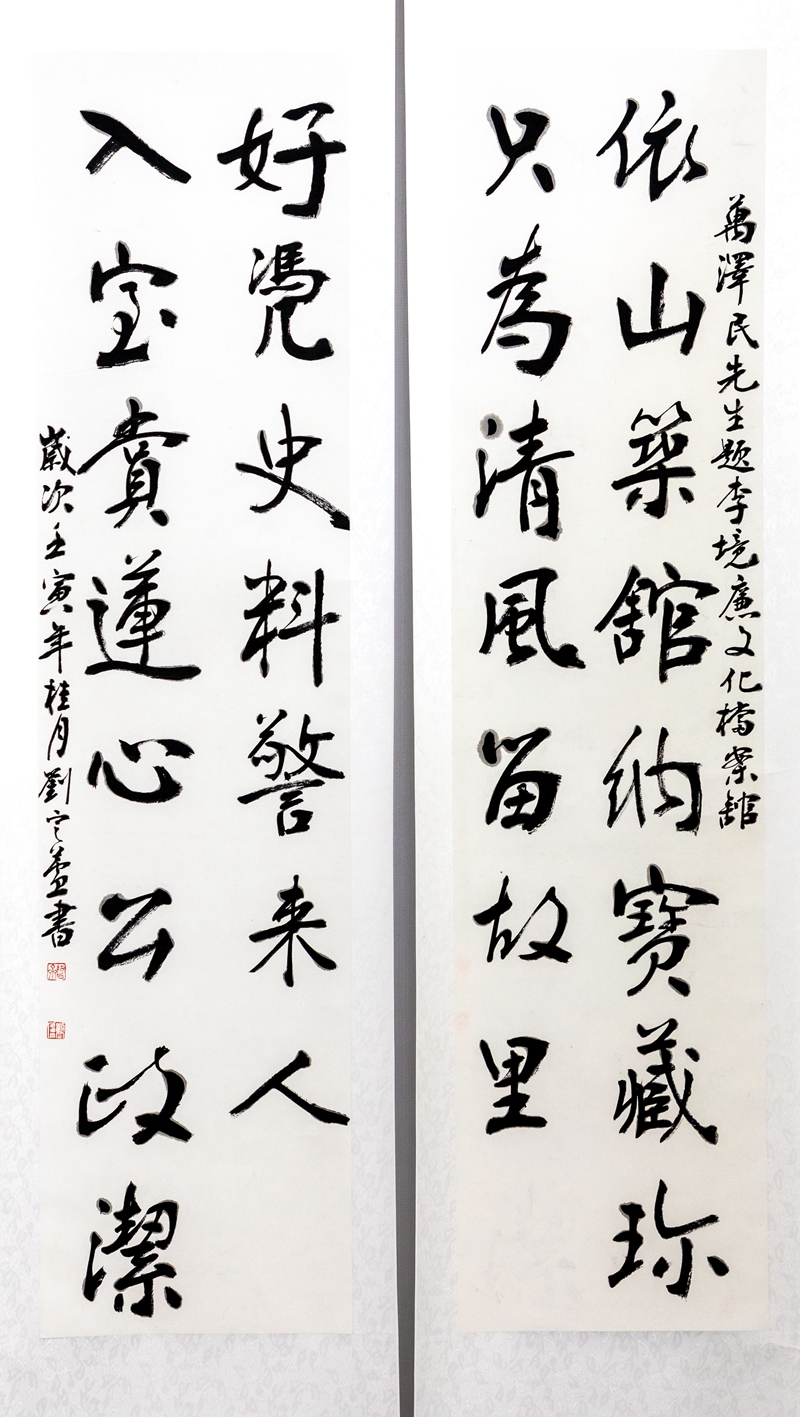 萬澤民先生题李境廉文化檔案舘
依山築舘納寶藏珍
只為清風留故里
入室賞蓮心公政潔
好憑史料警来人
歲次壬寅年桂月劉書